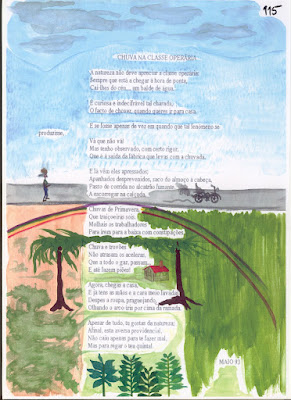 115
CHUVA NA CLASSE OPERÁRIA
A natureza não deve apreciar a classe operária
Sempre que está a chegar à hora de pausa
Cai dos céus... um balde de água.
É curiosa e indecifrável tal charada,
O facto de chover, quando querem ir para casa.
E se fosse apenas de vez em quando que tal fenómeno se
produzisse,
Vá que não vá!
Mas tenho observado, com certo rigor,
Que é à saída da fábrica que levas com a chuvada.
E lá vêm eles apressados;
Apanhados desprevenidos, saco do almoço à cabeça,
Fatos de corrida no alcatrão
A escorregar na calçada.
Chuvas de Primavera,
Que traiçoeiras sois,
Molhais as trabalhadores
Para irem para à baixa com constipações.
Chuva e trovões
Não atrasam os aceleras,
Que a todo o gaz, passam
E até fazem piões!
Agora, cheguei a casa,
E já nem as mãos e a cara
Despes a roupa, praguejando,
Olhando o arco íris por cima da ramada.
Apesar de tudo, tu gostas da natureza;
Afinal, esta aversa providencial,
Não caiu apenas para te fazer mal,
Mas para regar o teu quintal.
MAIO 83